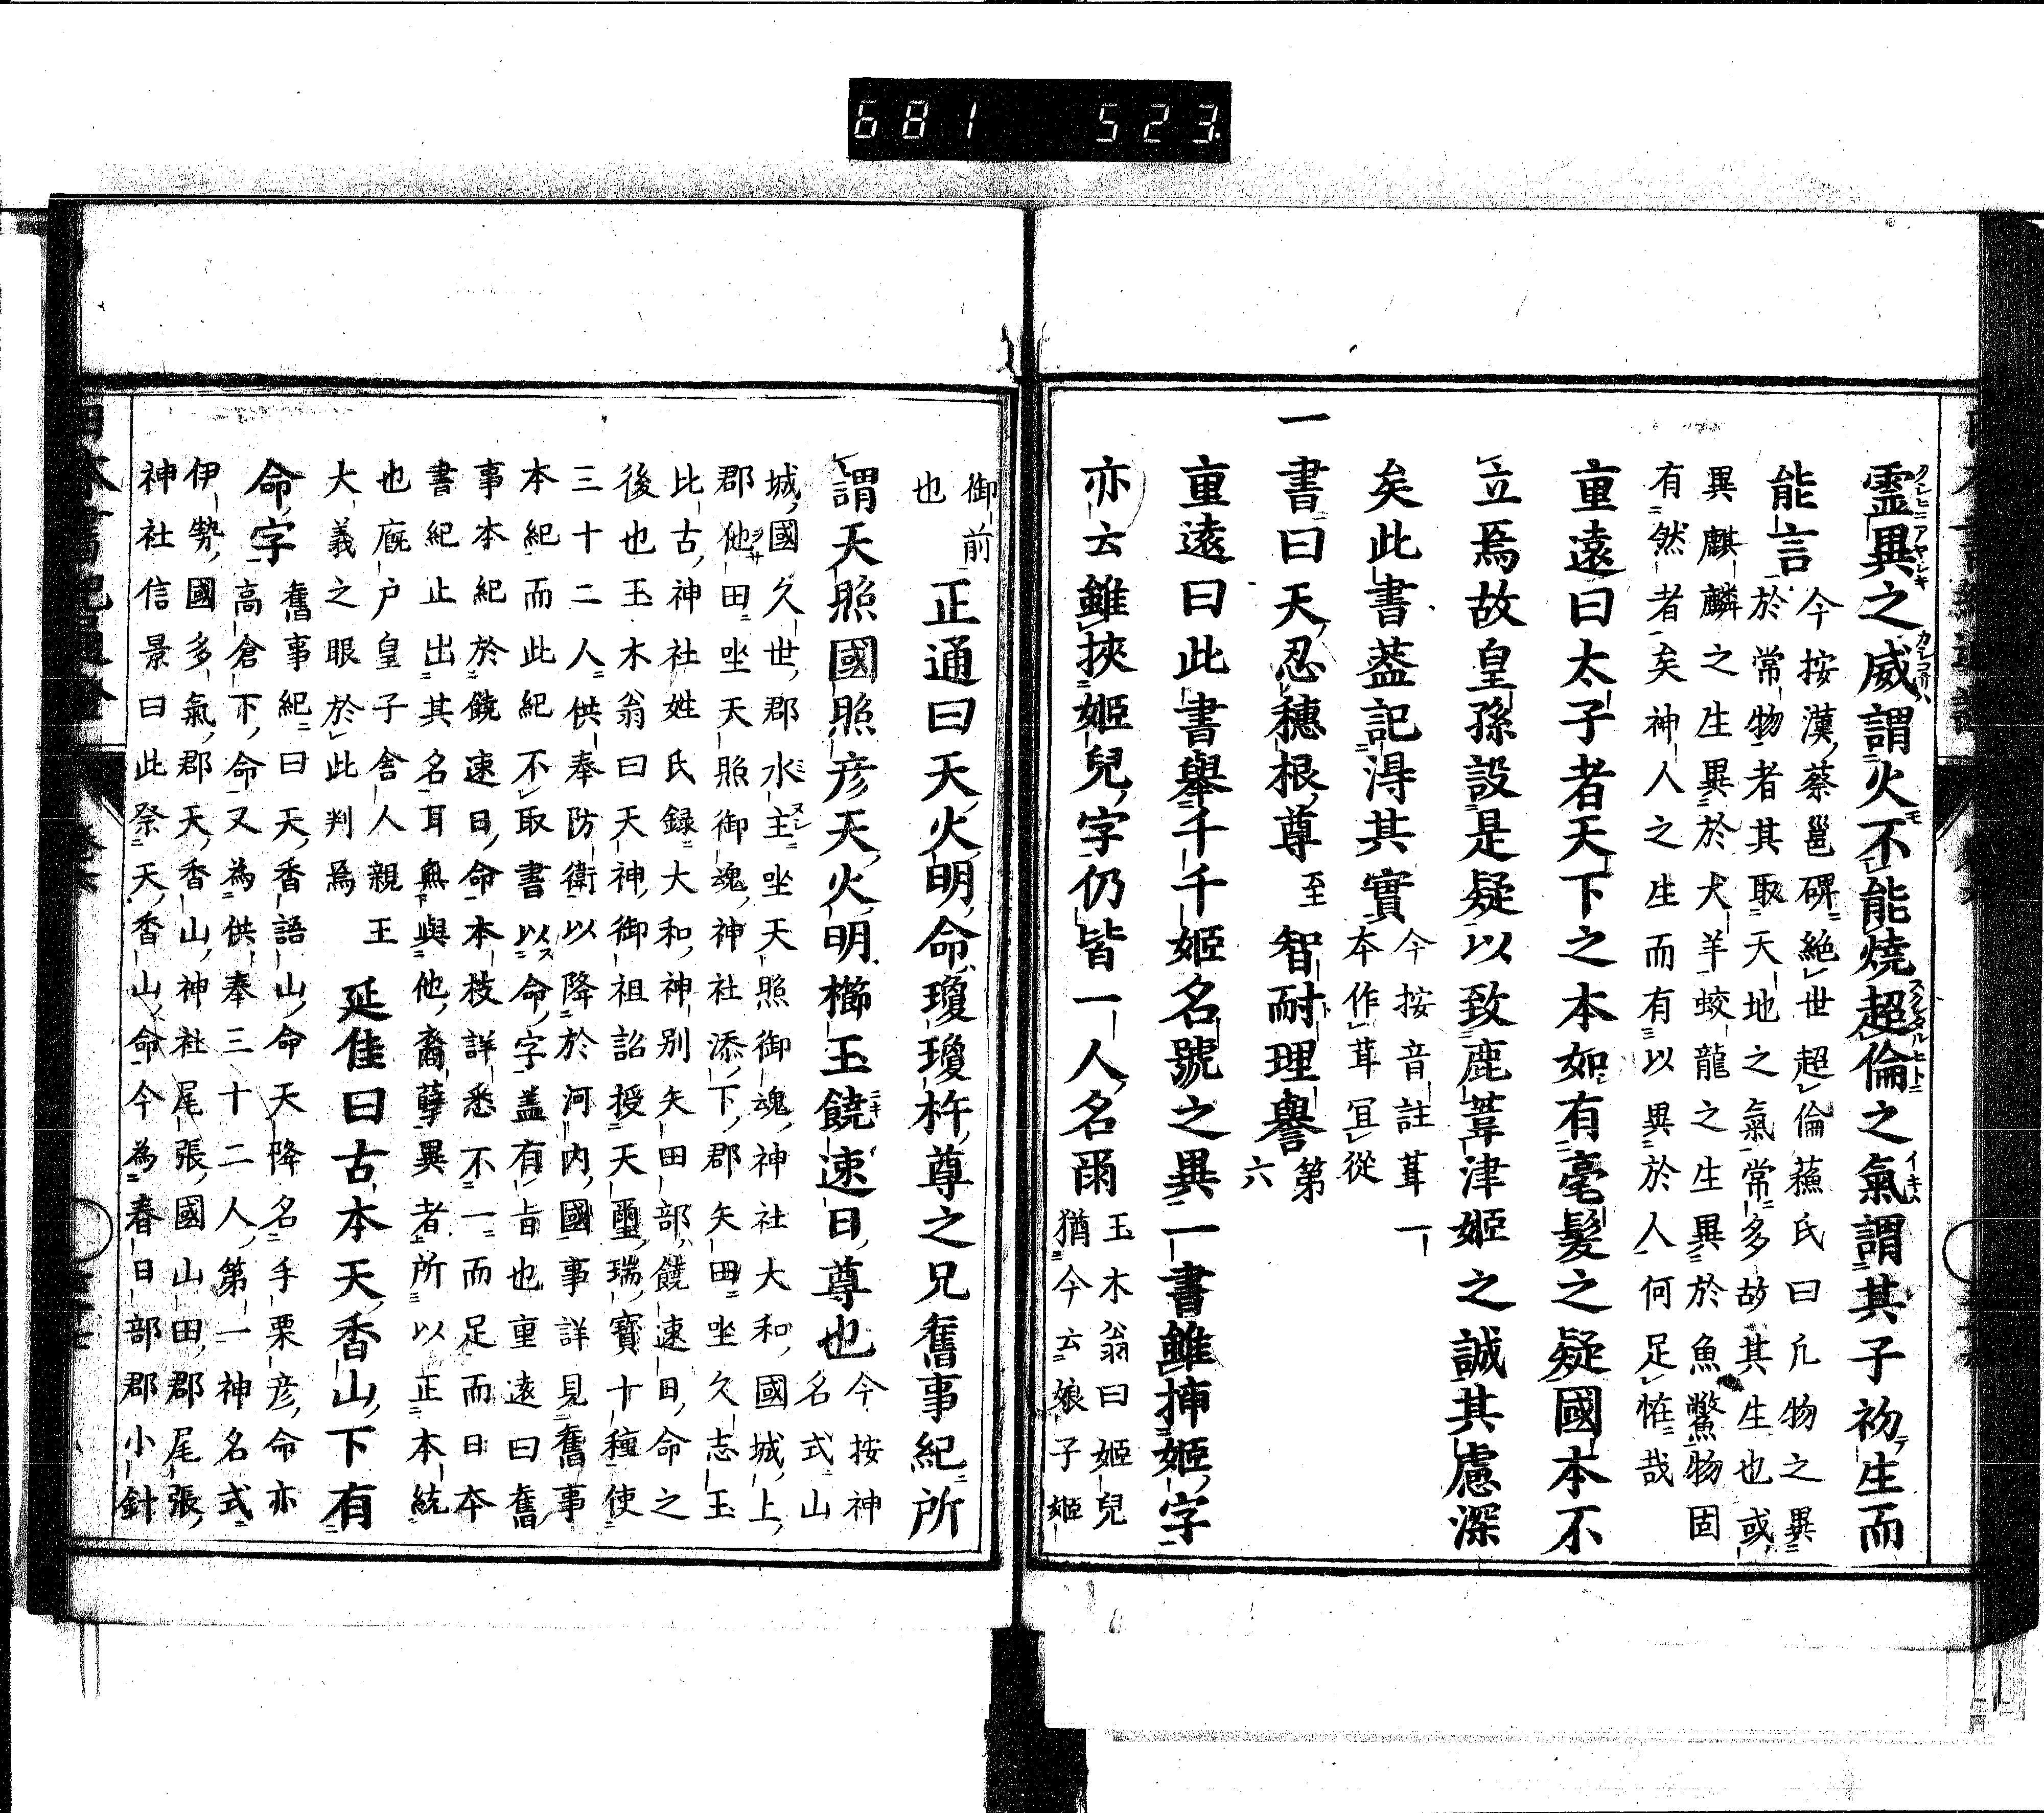 681 523.
靈異之威謂火不能燒超倫之氣謂其子初生而
能言
今按漢蔡邕碑絕世超倫蘓氏曰凢物之異
於常物者其取天地之氣常多故其生也或
異麒麟之生異於犬羊蛟龍之生異於魚鱉物固
有然者矣神人之生而有以異於人何足恠哉
重遠曰太子者天下之本如有毫髮之疑國本不
立焉故皇孫設是疑以致鹿葦津姬之誠其慮深
矣此書葢記淂其實
今按音註茸一
本作茸冝從
一書曰天忍穗根尊至智耐理譽第
六
重遠曰此書舉千千姬名號之異一書雖揷姬字
亦云雖挾姬兒字仍皆一人名爾
玉木翁曰姬兒
猶今云娘子姬
御前
也
正通曰天火明命瓊瓊杵尊之兄舊事紀所
謂天照國照彦天火明櫛玉饒速日尊也
今按神
名式山
城國久世郡水主坐天照御魂神社大和國城上
郡他田坐天照御魂神社添下郡矢田坐久志玉
比古神社姓氏録大和神別矢田部饒速日命之
後也玉木翁曰天神御祖詔授天璽瑞寶十種使
三十二人供奉防衛以降於河内國事詳見舊事
本紀而此紀不取書以命字盖有旨也重遠曰舊
事本紀於饒速日命本枝詳悉不一而足而日本
書紀止出其名耳無與他裔孽異者所以正本統
也廐戸皇子舎人親王
大義之眼於此判焉
延佳曰古本天香山下有
命字
舊事紀曰天香語山命天降名手栗彦命亦
高倉下命又為供奉三十二人第一神名式
伊勢國多氣郡天香山神社尾張國山田郡尾張
神社信景曰此祭天香山命今為春日部郡小針